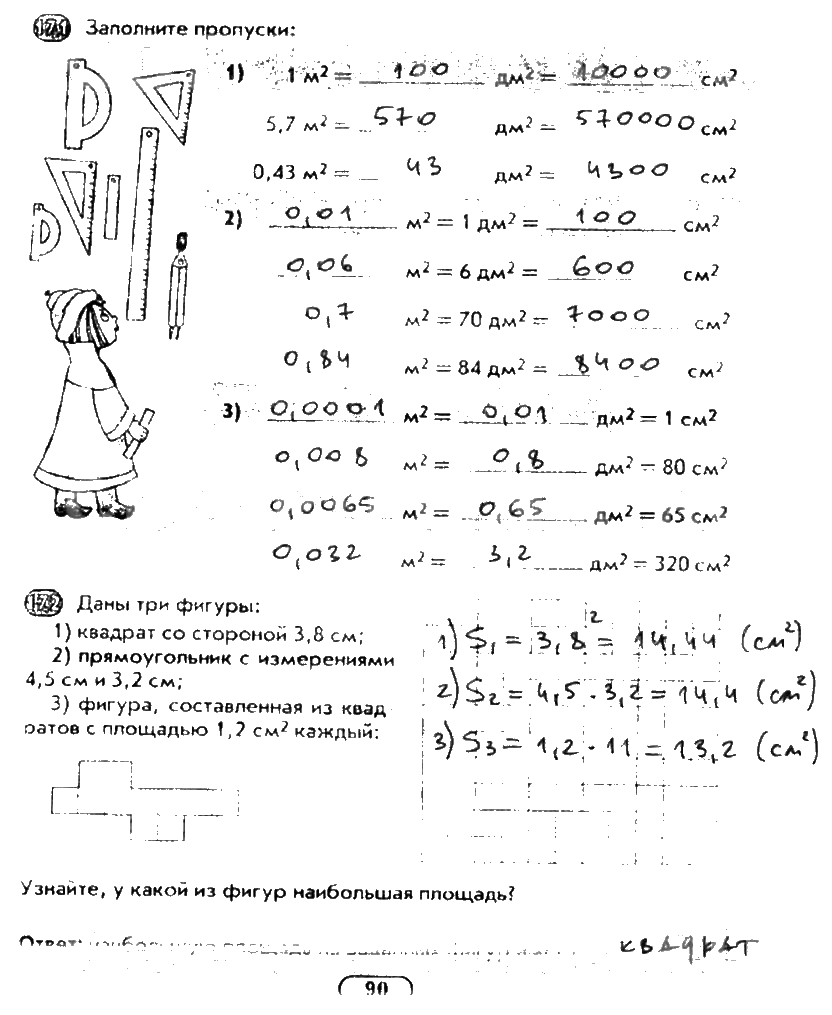 171 Заполните пропуски:
1) 1 м² = 100 дм² = 10000 см²
5,7 м² = 570 дм² = 570000 см²
0,43 м² = 43 дм² = 4300 см²
2) 0,01 м² = 1 дм² = 100 см²
0,06 м² = 6 дм² = 600 см²
0,7 м² = 70 дм² = 7000 см²
0,84 м² = 84 дм² = 8400 см²
3) 0,0001 м² = 0,01 дм² = 1 см²
0,008 м² = 0,8 дм² = 80 см²
0,0065 м² = 0,65 дм² = 65 см²
0,032 м² = 3,2 дм² = 320 см²
172 Даны три фигуры:
1) квадрат со стороной 3,8 см;
2) прямоугольник с измерениями
4,5 см и 3,2 см;
3) фигура, составленная из квад
ратов с площадью 1,2 см² каждый:
1) S₁ = 3,8² = 14,44 (см²)
2) S₂ = 4,5 · 3,2 = 14,4 (см²)
3) S₃ = 1,2 · 11 = 13,2 (см²)
Узнайте, у какой из фигур наибольшая площадь?
Ответ: квадрат
90